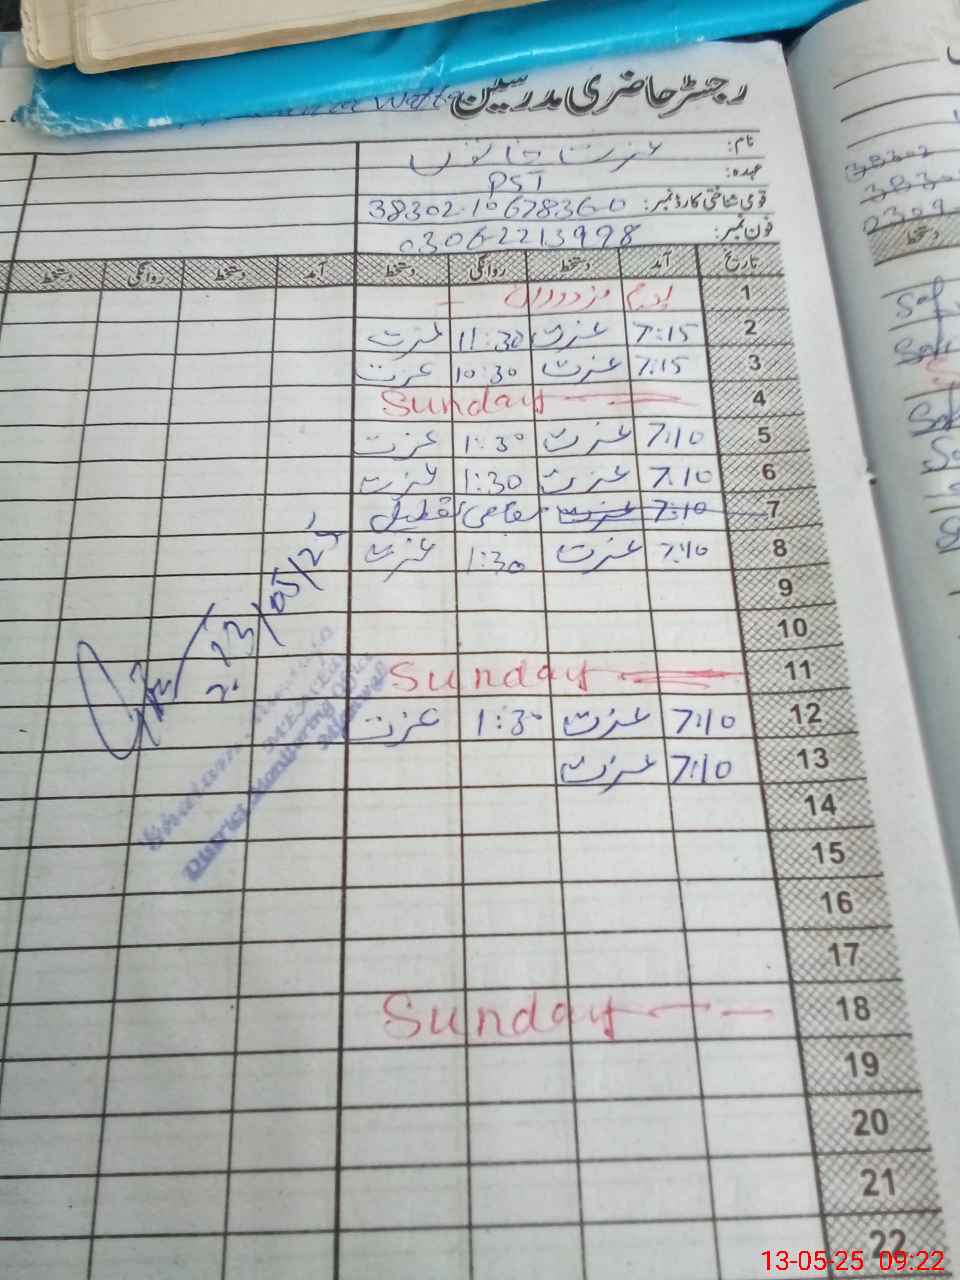 رجسٹر حاضری مدرسین
نام: عزت خاتون
عہدہ: PST
قومی شناختی کارڈ نمبر: 38302-1067836-0
فون نمبر: 0306-2213998
تاریخ آمد دستخط روانگی دستخط آمد دستخط روانگی دستخط
1 یوم مزدوراں
2 7:15 عزت 11:30 عزت
3 7:15 عزت 10:30 عزت
4 Sunday
5 7:10 عزت 1:30 عزت
6 7:10 عزت 1:30 عزت
7 7:10 عزت مقامی تعطیل
8 7:10 عزت 1:30 عزت
9
10
11 Sunday
12 7:10 عزت 1:30 عزت
13 7:10 عزت
14
15
16
17
18 Sunday
19
20
21
22
13/05/25
District Monitoring Office
دستخط
38302
0309
13-05-25 09:22